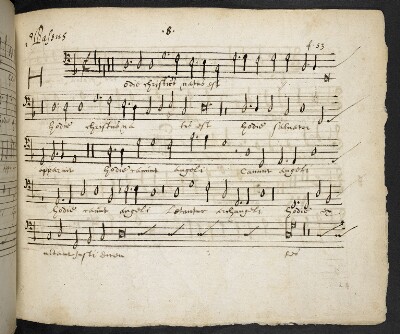 ·8·
f. 53
Hodie christus natus est
Hodie christus na tus est Hodie salvator
apparuit Hodie canunt angeli Canunt angeli
Hodie canut angeli Letantur archangeli Hodie ex
ultant justi